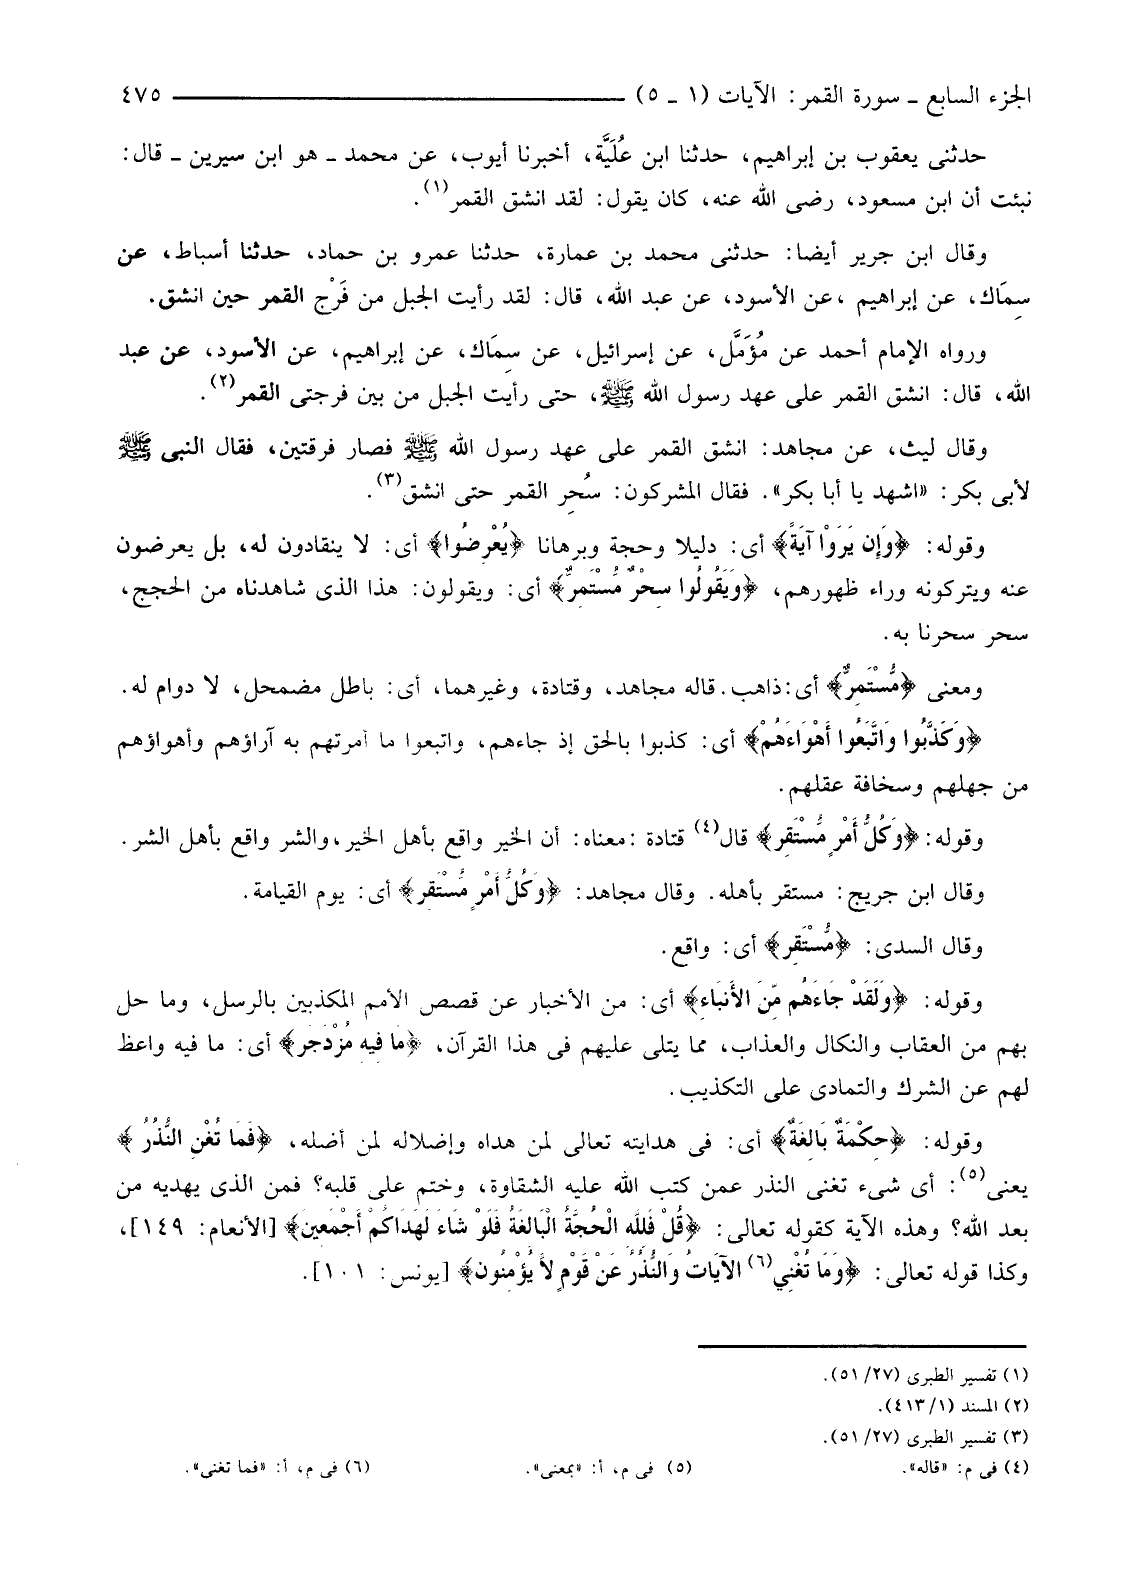 الجزء السابع ـ سورة القمر: الآيات (١ ـ ٥) ٤٧٥
حدثنى يعقوب بن إبراهيم، حدثنا ابن عُلَيَّة، أخبرنا أيوب، عن محمد ـ هو ابن سيرين ـ قال:
نبئت أن ابن مسعود، رضى الله عنه، كان يقول: لقد انشق القمر(١).
وقال ابن جرير أيضا: حدثنى محمد بن عمارة، حدثنا عمرو بن حماد، حدثنا أسباط، عن
سِمَاك، عن إبراهيم ،عن الأسود، عن عبد الله، قال: لقد رأيت الجبل من فَرْج القمر حين انشق.
ورواه الإمام أحمد عن مُؤَمَّل، عن إسرائيل، عن سِمَاك، عن إبراهيم، عن الأسود، عن عبد
الله، قال: انشق القمر على عهد رسول الله ﷺ، حتى رأيت الجبل من بين فرجتى القمر(٢).
وقال ليث، عن مجاهد: انشق القمر على عهد رسول الله ﷺ فصار فرقتين، فقال النبى ﷺ
لأبى بكر: «اشهد يا أبا بكر». فقال المشركون: سُحِر القمر حتى انشق(٣).
وقوله: ﴿وَإِن يَرَوْا آيَةً﴾ أى: دليلا وحجة وبرهانا ﴿يُعْرِضُوا﴾ أى: لا ينقادون له، بل يعرضون
عنه ويتركونه وراء ظهورهم، ﴿وَيَقُولُوا سِحْرٌ مُّسْتَمِرٌّ﴾ أى: ويقولون: هذا الذى شاهدناه من الحجج،
سحر سحرنا به.
ومعنى ﴿مُّسْتَمِرٌّ﴾ أى:ذاهب. قاله مجاهد، وقتادة، وغيرهما، أى: باطل مضمحل، لا دوام له.
﴿وَكَذَّبُوا وَاتَّبَعُوا أَهْوَاءَهُمْ﴾ أى: كذبوا بالحق إذ جاءهم، واتبعوا ما أمرتهم به آراؤهم وأهواؤهم
من جهلهم وسخافة عقلهم.
وقوله: ﴿وَكُلُّ أَمْرٍ مُّسْتَقِر﴾ قال(٤) قتادة :معناه: أن الخير واقع بأهل الخير،والشر واقع بأهل الشر.
وقال ابن جريج: مستقر بأهله. وقال مجاهد: ﴿وَكُلُّ أَمْرٍ مُّسْتَقِر﴾ أى: يوم القيامة.
وقال السدى: ﴿مُّسْتَقِر﴾ أى: واقع.
وقوله: ﴿وَلَقَدْ جَاءَهُم مِّنَ الأَنبَاء﴾ أى: من الأخبار عن قصص الأمم المكذبين بالرسل، وما حل
بهم من العقاب والنكال والعذاب، مما يتلى عليهم فى هذا القرآن، ﴿مَا فِيهِ مُزْدَجَر﴾ أى: ما فيه واعظ
لهم عن الشرك والتمادى على التكذيب.
وقوله: ﴿حِكْمَةٌ بَالِغَةٌ﴾ أى: فى هدايته تعالى لمن هداه وإضلاله لمن أضله، ﴿فَمَا تُغْنِ النُّذُرُ﴾
يعنى(٥): أى شىء تغنى النذر عمن كتب الله عليه الشقاوة، وختم على قلبه؟ فمن الذى يهديه من
بعد الله؟ وهذه الآية كقوله تعالى: ﴿قُلْ فَلِلَّهِ الْحُجَّةُ الْبَالِغَةُ فَلَوْ شَاءَ لَهَدَاكُمْ أَجْمَعِينَ﴾ [الأنعام: ١٤٩]،
وكذا قوله تعالى: ﴿وَمَا تُغْنِي(٦) الآيَاتُ وَالنُّذُرُ عَنْ قَوْمٍ لاَّ يُؤْمِنُون﴾ [يونس: ١٠١].
(١) تفسير الطبرى (٢٧/ ٥١).
(٢) المسند (١/ ٤١٣).
(٣) تفسير الطبرى (٢٧/ ٥١).
(٤) فى م: «قاله». (٥) فى م، أ: «بمعنى». (٦) فى م، أ: «فما تغنى».